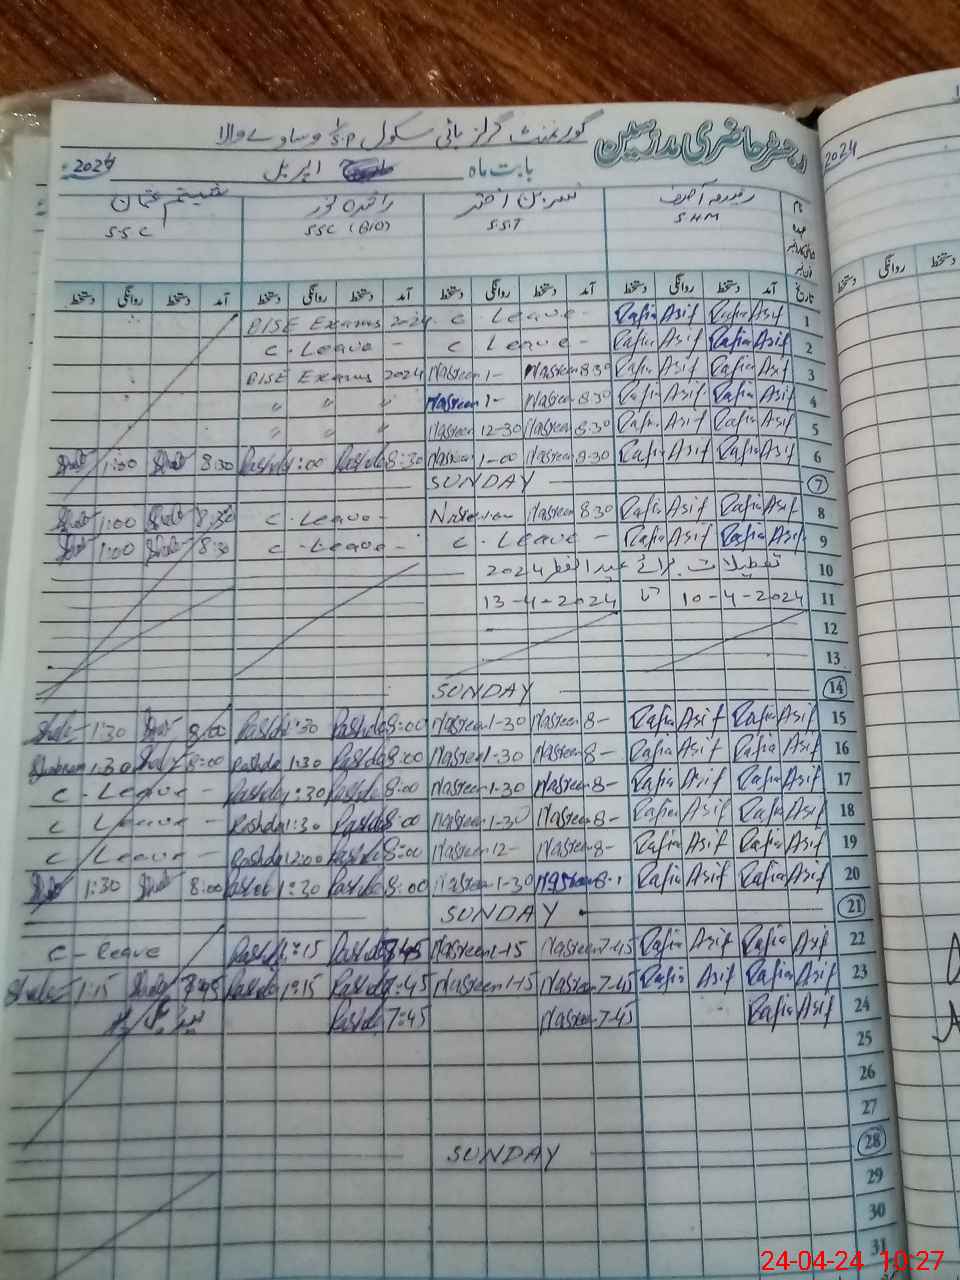 رجسٹر حاضری مدرسین گورنمنٹ گرلز ہائی سکول 1/S.P وساوے والا
بابت ماہ اپریل 2024
2024
نام عہدہ
S.H.M نسرین اختر S.S.T راشدہ نور SSC (BIO) S.S.C
تاریخ آمد دستخط روانگی دستخط آمد دستخط روانگی دستخط آمد دستخط روانگی دستخط آمد دستخط روانگی دستخط
روانگی دستخط
1 Rafia Asif Rafia Asif C. Leave - BISE Exams 2024
2 Rafia Asif Rafia Asif C Leave - C. Leave -
3 Rafia Asif Rafia Asif Nasreen 8.30 Nasreen 1- BISE Exams 2024
4 Rafia Asif Rafia Asif Nasreen 8.30 Nasreen 1- " " "
5 Rafia Asif Rafia Asif Nasreen 8.30 Nasreen 12-30 " " "
6 Rafia Asif Rafia Asif Nasreen 8.30 Nasreen 1-00 Rashda 8:30 Rashda 1:00 8:30 1:00
7 SUNDAY
8 Rafia Asif Rafia Asif Nasreen 8.30 C. Leave - 8:30 1:00
9 Rafia Asif Rafia Asif C. Leave - C. Leave - 8:30 1:00
10 تعطیلات برائے عید الفطر 2024
11 10-4-2024 تا 13-4-2024
12
13
14 SUNDAY
15 Rafia Asif Rafia Asif Nasreen 8- Nasreen 1-30 Rashda 8:00 Rashda 1:30 8:00 1:30
16 Rafia Asif Rafia Asif Nasreen 8- Nasreen 1-30 Rashda 8:00 Rashda 1:30 8:00 Shabnam 1:30
17 Rafia Asif Rafia Asif Nasreen 8- Nasreen 1-30 Rashda 8:00 Rashda 1:30 C. Leave -
18 Rafia Asif Rafia Asif Nasreen 8- Nasreen 1-30 Rashda 8:00 Rashda 1:30 C Leave -
19 Rafia Asif Rafia Asif Nasreen 8- Nasreen 12- Rashda 8:00 Rashda 12:00 C Leave -
20 Rafia Asif Rafia Asif Nasreen 8- Nasreen 1-30 Rashda 8:00 Rashda 1:30 8:00 1:30
21 SUNDAY
22 Rafia Asif Rafia Asif Nasreen 7-45 Nasreen 1-15 Rashda 7:45 Rashda 1:15 C - Leave
23 Rafia Asif Rafia Asif Nasreen 7-45 Nasreen 1-15 Rashda 7:45 Rashda 1:15 7:45 1:15
24 Rafia Asif Nasreen 7-45 Rashda 7:45
25
26
27
28 SUNDAY
29
30
31
24-04-24 10:27